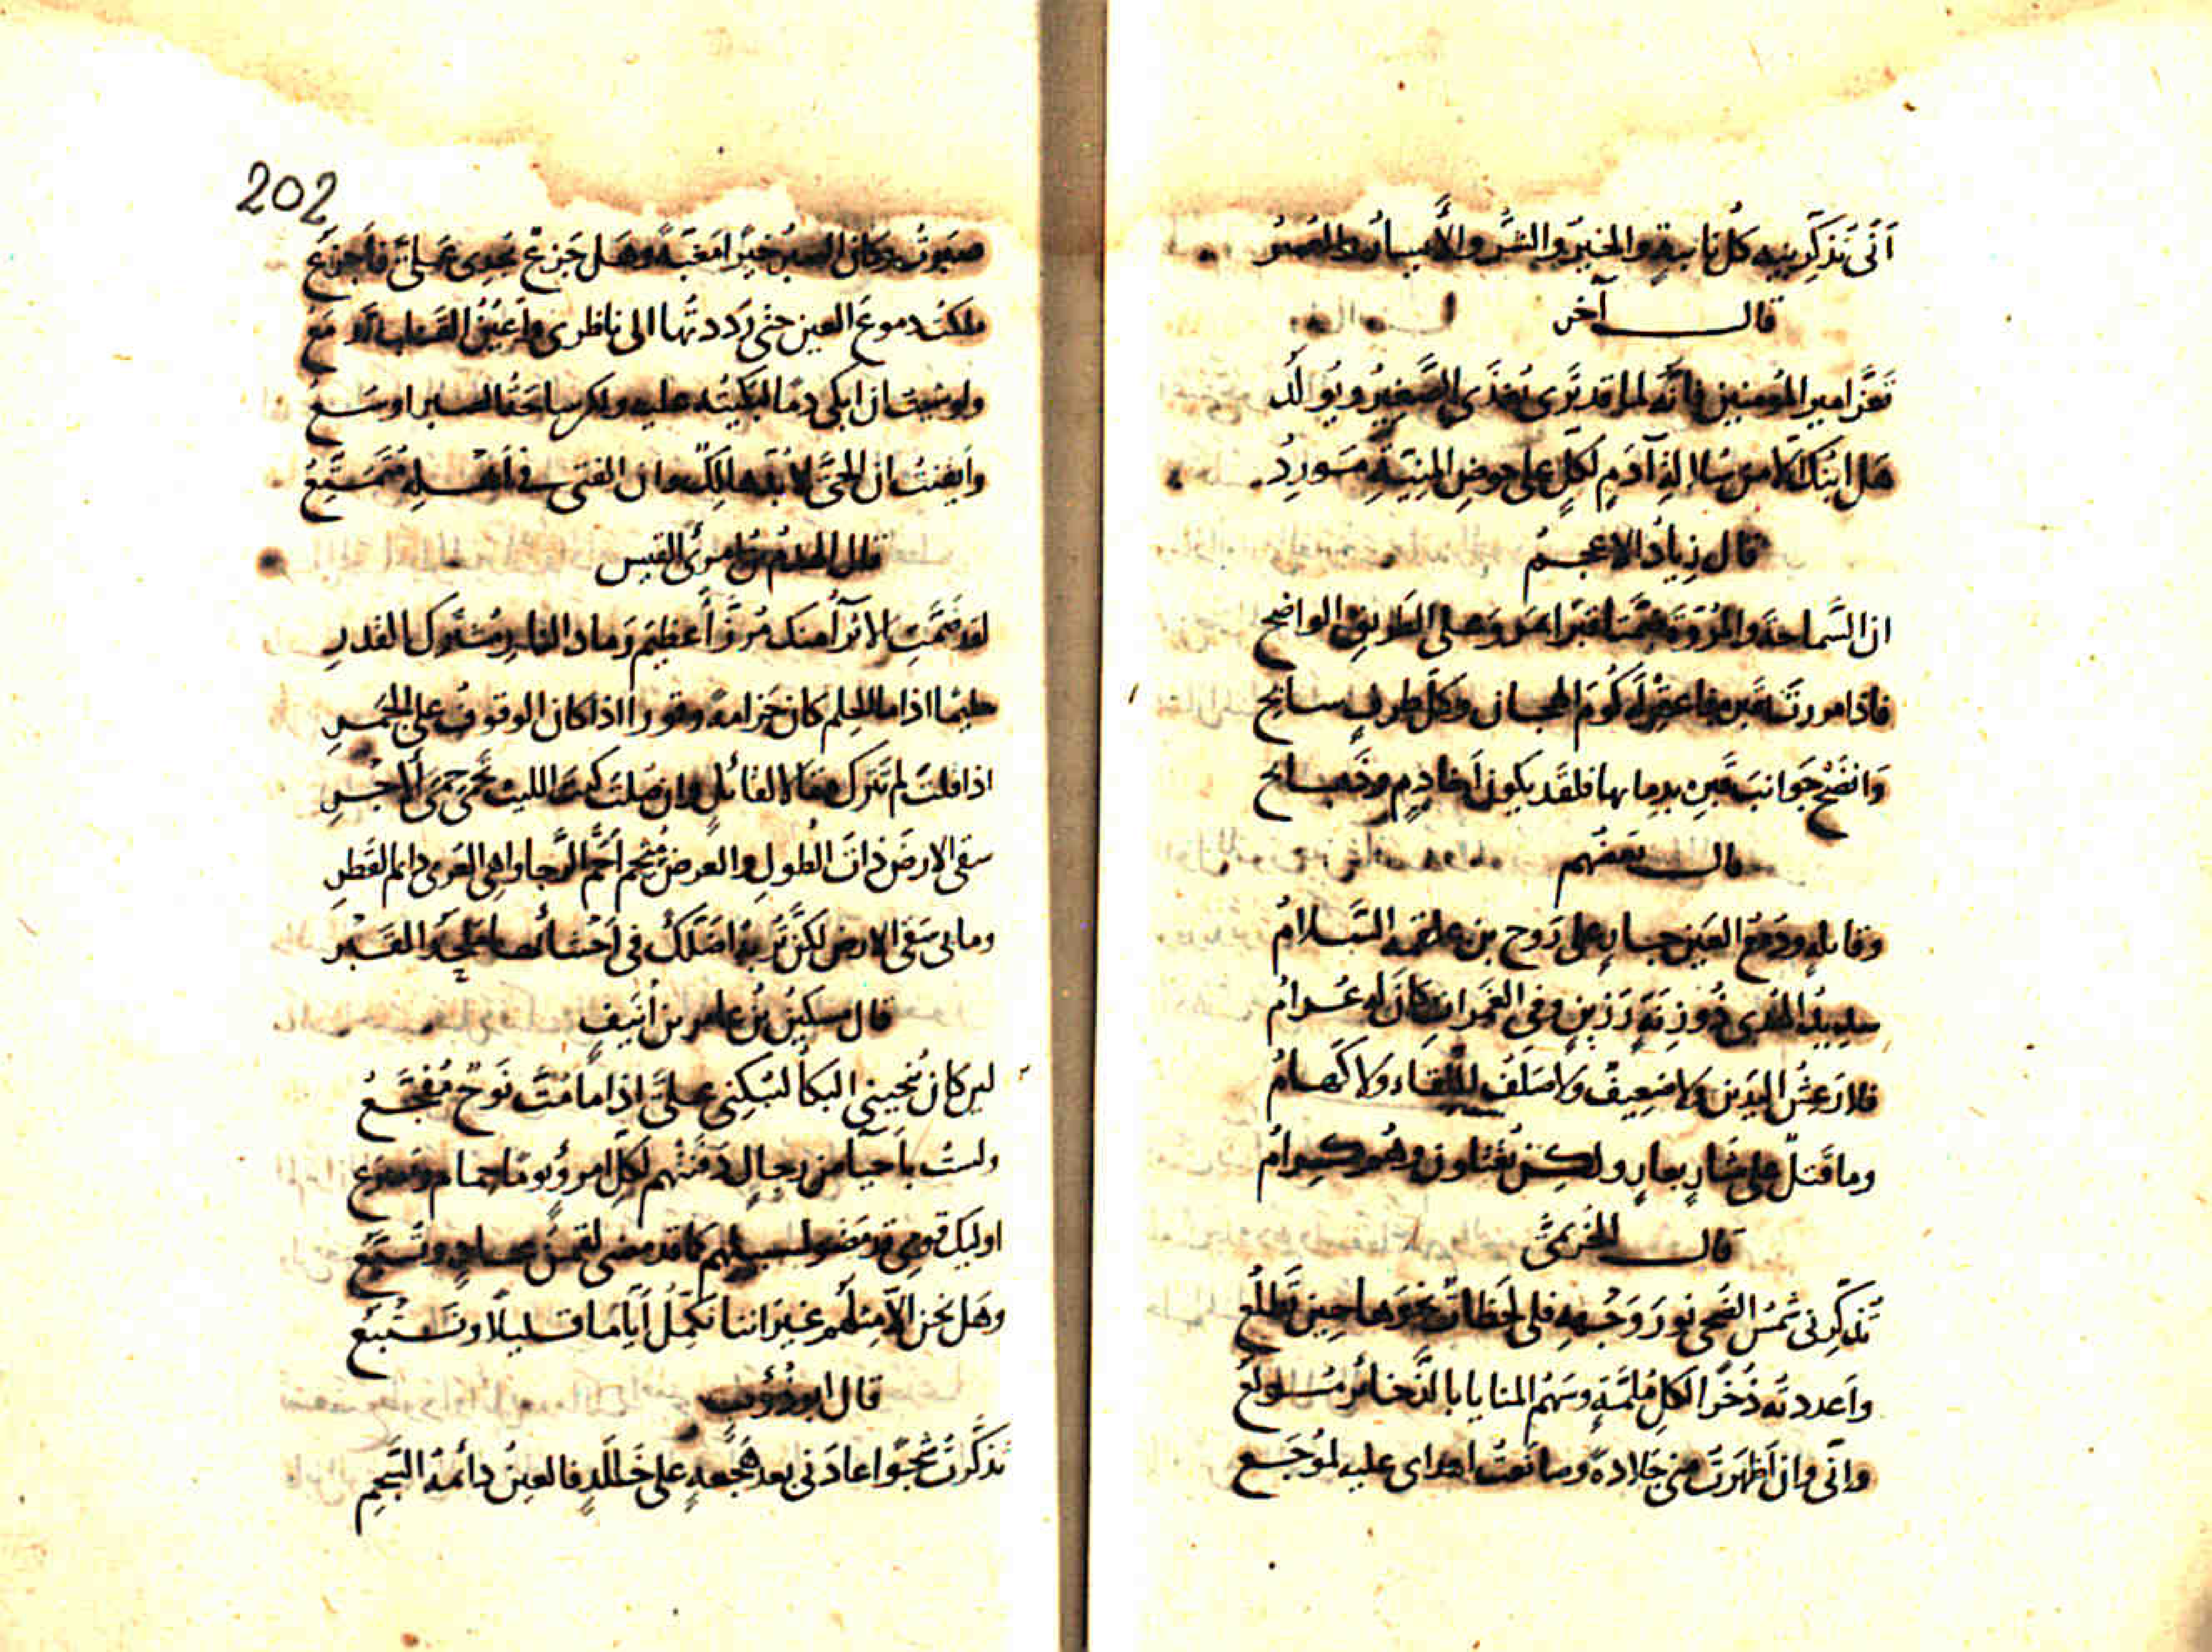 أنّى تذكّرنيه كل نايبة والخير والشر والأيسار والعسر
قال آخر
تعزّ امير المؤمنين فانه لما قد ترى يغذى الصغير ويولد
هل ابنك الا من سلالة آدم لكل على حوض المنية مورد
قال زياد الاعجم
ان السماحة والمروة ضمنا قبرا بمرو على الطريق الواضح
فاذا مررت بقبره فاعقر له كوم الهجان وكل طرف سابح
وانضح جوانب قبره بدمايها فلقد يكون اخا دم وذبايح
قال بعضهم
وقايلة ودمع العين جار على روح بن علقمة السلام
الندى ذو نه رزين وفي الغمرات كان له عرام
فلا رعش اليدين ولا ضعيف ولا صلف اللقاء ولا كهام
وما قتل على شار بعار ولكن يقتلون وهم كرام
قال الخريمي
تذكرني شمس الضحى نور وجهه فلى لحظات نحوها حين تطلع
واعددته ذخرا لكل ملمة وسهم المنايا بالذخائر مولع
وانّى وان اظهرت منى جلادة وصانعت اعداى عليه لموجع
202
صبرت وكان الصبر خيرا مغبة وهل جزع يجدى على فاجزع
ملكت دموع العين حتى رددتها الى ناظرى واعين القلب تدمع
ولو شئت ان ابكى دما لبكيته عليه ولكن ساحة الصبر اوسع
وأيقنت ان الحى لا بد هالك وان الفتى في اهله متمتع
قال الهدم بن امرئ القيس
لقد ضمت الاثرآ منك مرزّأ عظيم رماد النار مشترك القدر
حليما اذا ما الحلم كان حزامة وقورا اذا كان الوقوف على الجمر
اذا قلت لم تترك مقالا لقائل وان صلت كنت الليث تحمى حمى الاجر
سقى الارض ذات الطول والعرض مثجم أحم الرجا واهى العرى دائم القطر
وما بى سقى الارض لكن تربة اضلك في احشائها ملحد القبر
قال مسكين بن عامر بن أنيف
لين كان يحييني البكا لتبكني على اذا ما مت نوح مفجع
ولست باحيا من رجال دفنتهم لكل امرؤ يوما حمام ومصرع
اوليك قومى قد مضوا لسبيلهم كما قد مضى لقمن عاد وتبع
وهل نحن الا مثلهم غير اننا نكمل أياما قليلا ونتبع
قال ابو ذؤيب
تذكرت شجوا عادنى بعد هجعة على خالد فالعين دائمة السجم